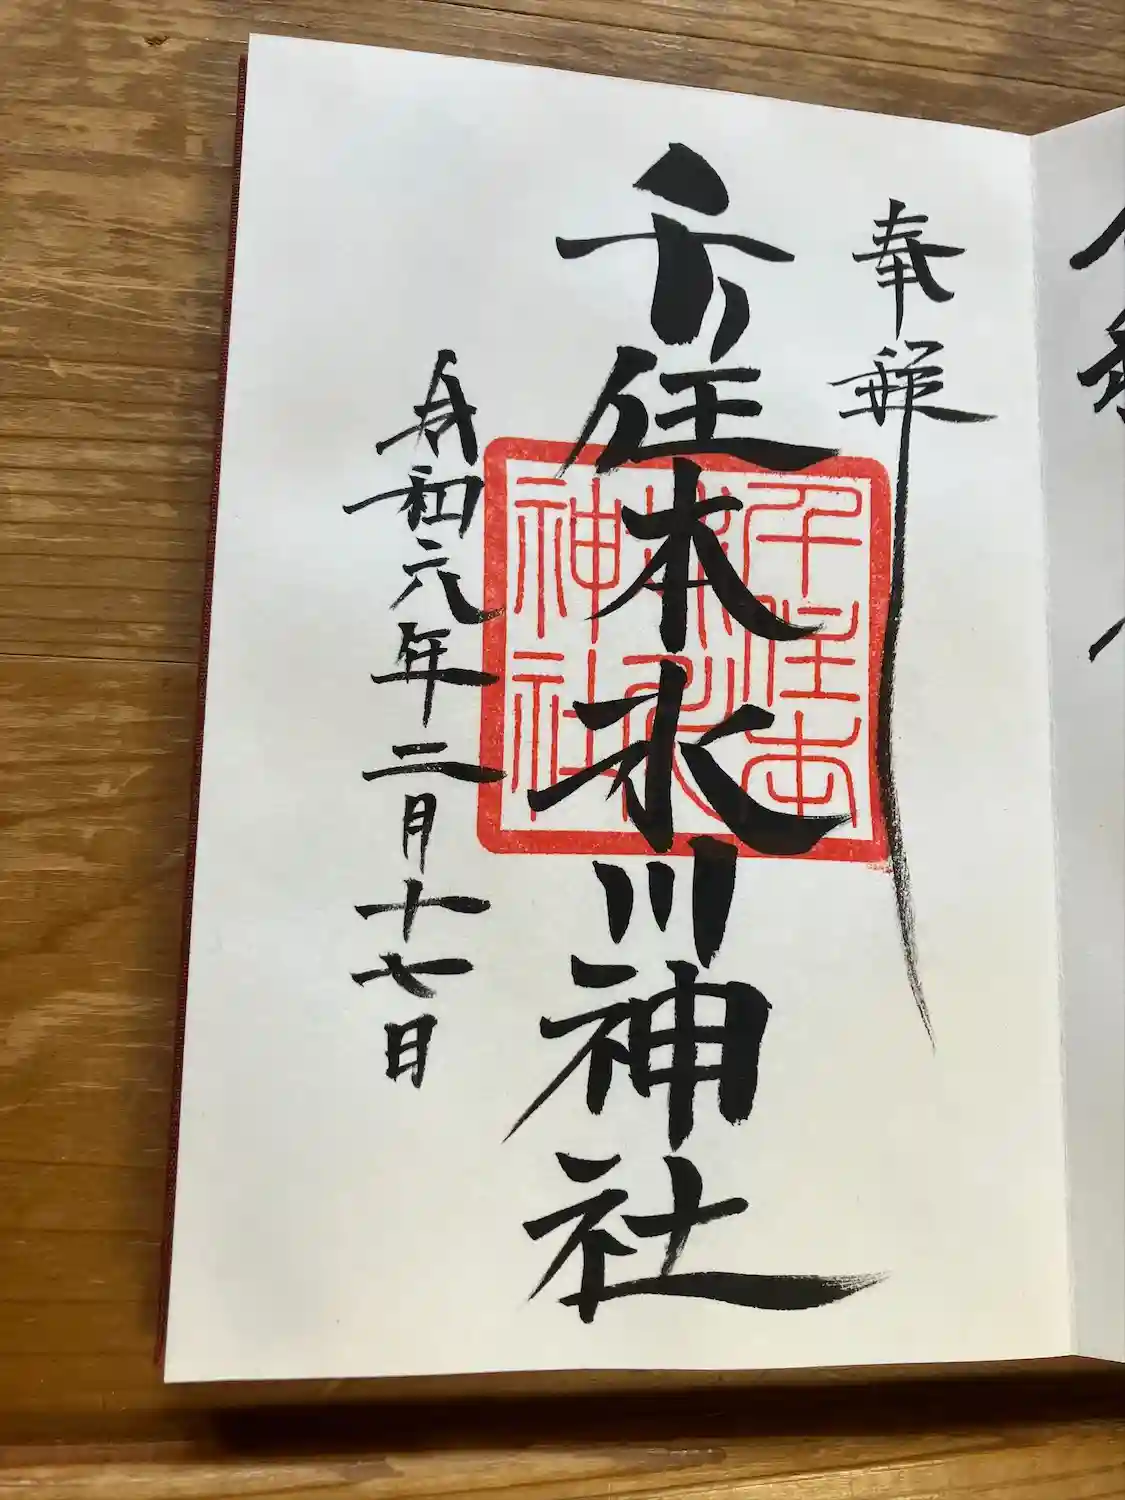 奉拝
千住本氷川神社
令和六年二月十七日
千住本
氷川
神社